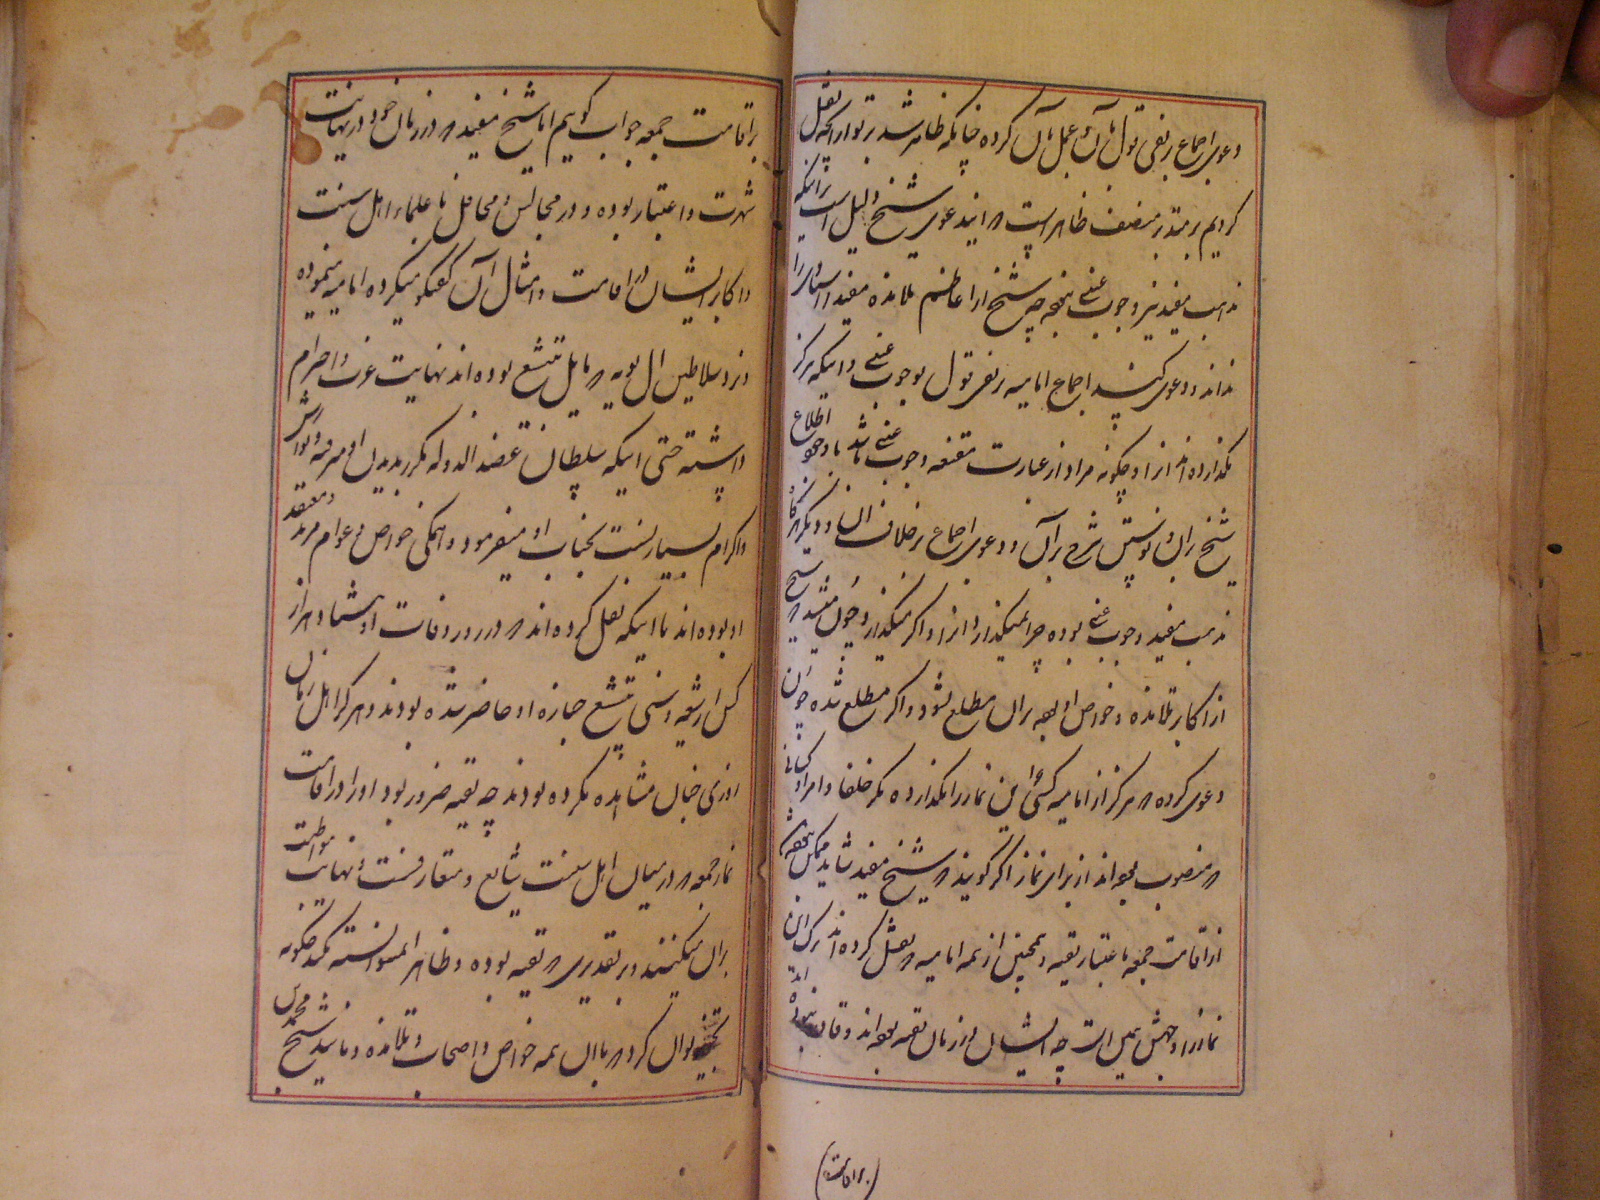 دعوی اجماع بر نفی قول بآن و عمل بآن کرده چنانکه ظاهر شد بر تو از آنچه نقل
کردیم بر متدبر منصف ظاهر است که این دعوی شیخ دلیل است بر اینکه
مذهب مفید نیز وجوب عینی نیست چه شیخ از اعاظم تلامذه مفید است
نداند و دعوی کند اجماع امامیه بر نفی قول بوجوب عینی و اینکه هرگز
نگذارده‌اند آنرا و چگونه مراد از عبارت مقنعه وجوب عینی باشد با وجود اطلاع
شیخ بر آن و نوشتن شرح بر آن و دعوی اجماع بر خلاف آن و دیگر آنکه اگر
مذهب مفید وجوب عینی بوده چرا نمیگذارد آنرا و اگر میگذارد چون میشد که شیخ
از اکابر تلامذه و خواص او بوده بر آن مطلع نشود و اگر مطلع شده چون
دعوی کرده که هرگز از امامیه کسی این نماز را نگذارده مگر خلفا و امرا و کسانی
که منصوب بوده‌اند از برای نماز اگر گویند که شیخ مفید شاید ممکن نبوده
از اقامت جمعه باعتبار تقیه و همچنین از همه امامیه که نقل کرده‌اند ترک این
نماز را وجهش همین است چه ایشان در زمان تقیه بوده‌اند و قادر نبوده‌اند
(بر اقامت)
بر اقامت جمعه جواب گویم اما شیخ مفید که در زمان خود در نهایت
شهرت و اعتبار بوده و در مجالس و محافل با علماء اهل سنت
و اکابر ایشان در امامت و امثال آن گفتگو میکرده امامیه مینموده
و نزد سلاطین آل بویه که مایل بتشیع بوده‌اند نهایت عزت و احترام
داشته حتی اینکه سلطان عضد الدوله مکرر بدیدن او میرفته و نوازش
و اکرام بسیار نسبت بجناب او میفرمود و همگی خواص و عوام مرید و معتقد
او بوده‌اند تا اینکه نقل کرده‌اند که در روز وفات او هشتاد هزار
کس از شیعه و سنی بتشییع جنازه او حاضر شده بودند و هرگز اهل زمان
روزی چنان مشاهده نکرده بودند چه تقیه ضرور بود او را در اقامت
نماز جمعه که در میان اهل سنت شایع و متعارفست و نهایت مواظبت
بر آن میکنند و بر تقدیری که تقیه بوده و ظاهرا نمیتوانسته بکند چگونه
توان کرد که با آن همه خواص و اصحاب و تلامذه و مانند شیخ